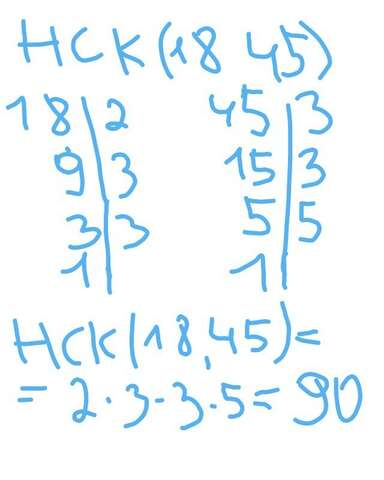 НСК(18 45)
18|2 45|3
9|3 15|3
3|3 5|5
1| 1|
НСК(18,45)=
=2·3·3·5=90